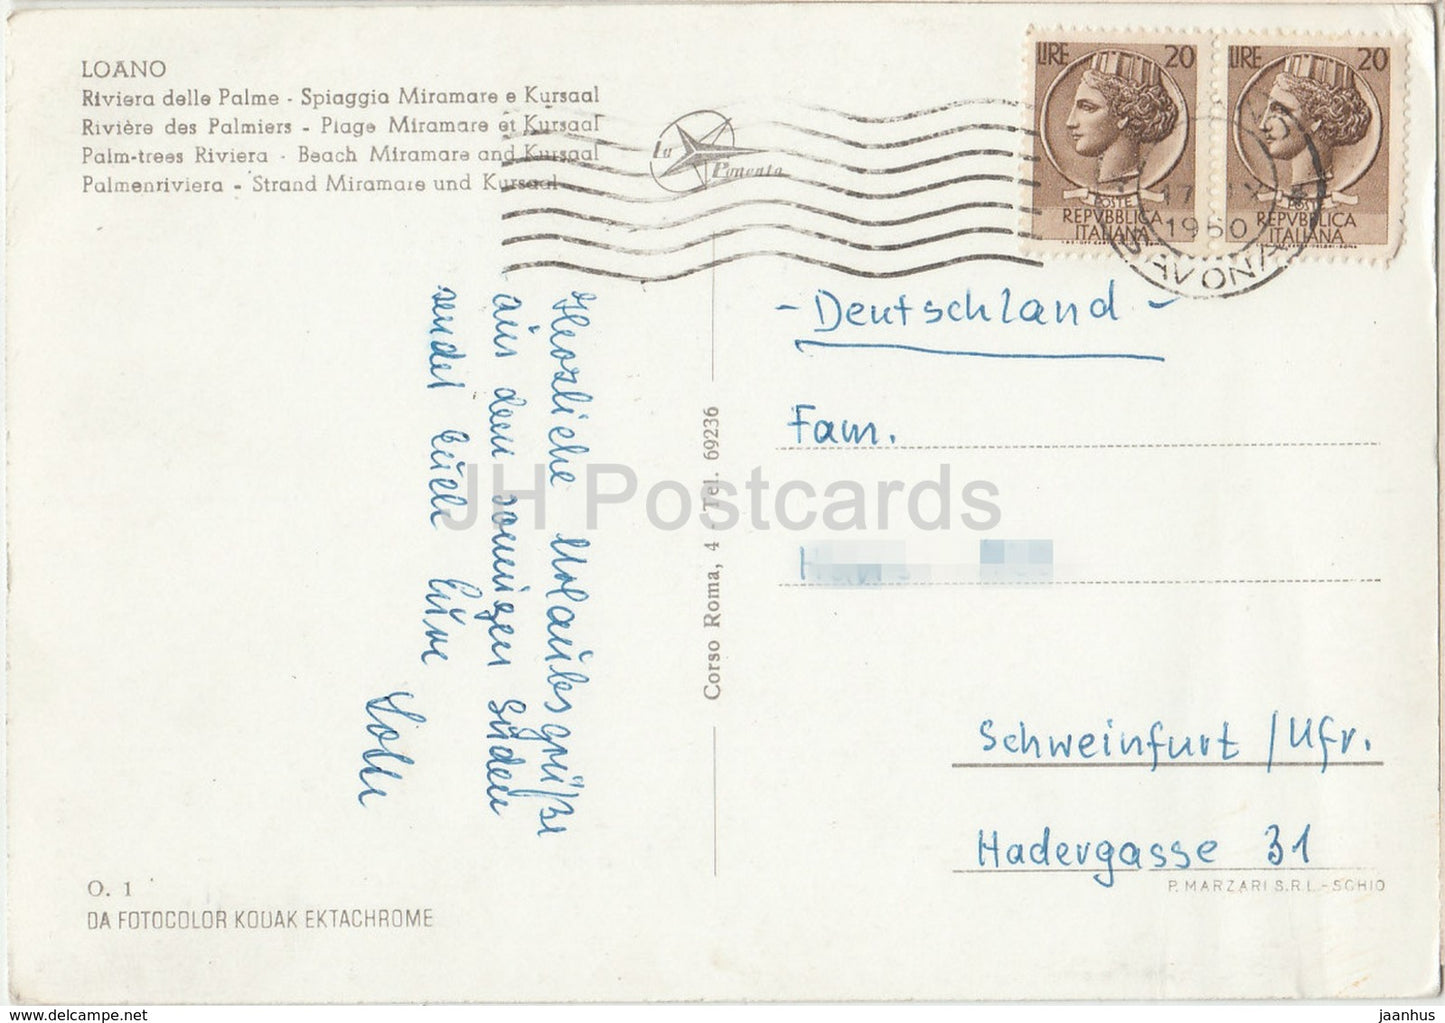 LOANO
Riviera delle Palme - Spiaggia Miramare e Kursaal
Rivière des Palmiers - Plage Miramare et Kursaal
Palm-trees Riviera - Beach Miramare and Kursaal
Palmenriviera - Strand Miramare und Kursaal
La Ponenta
LIRE 20
POSTE
REPVBBLICA
ITALIANA
LIRE 20
POSTE
REPVBBLICA
ITALIANA
17
1960
SAVONA
Herzliche Urlaubsgrüße
aus dem sonnigen Süden
sendet Euch Eure
- Deutschland -
Fam.
Schweinfurt / Ufr.
Hadergasse 31
Corso Roma, 4 - Tel. 69236
JH Postcards
O. 1
DA FOTOCOLOR KODAK EKTACHROME
P. MARZARI S.R.L. - SCHIO
www.delcampe.net
jaanhus